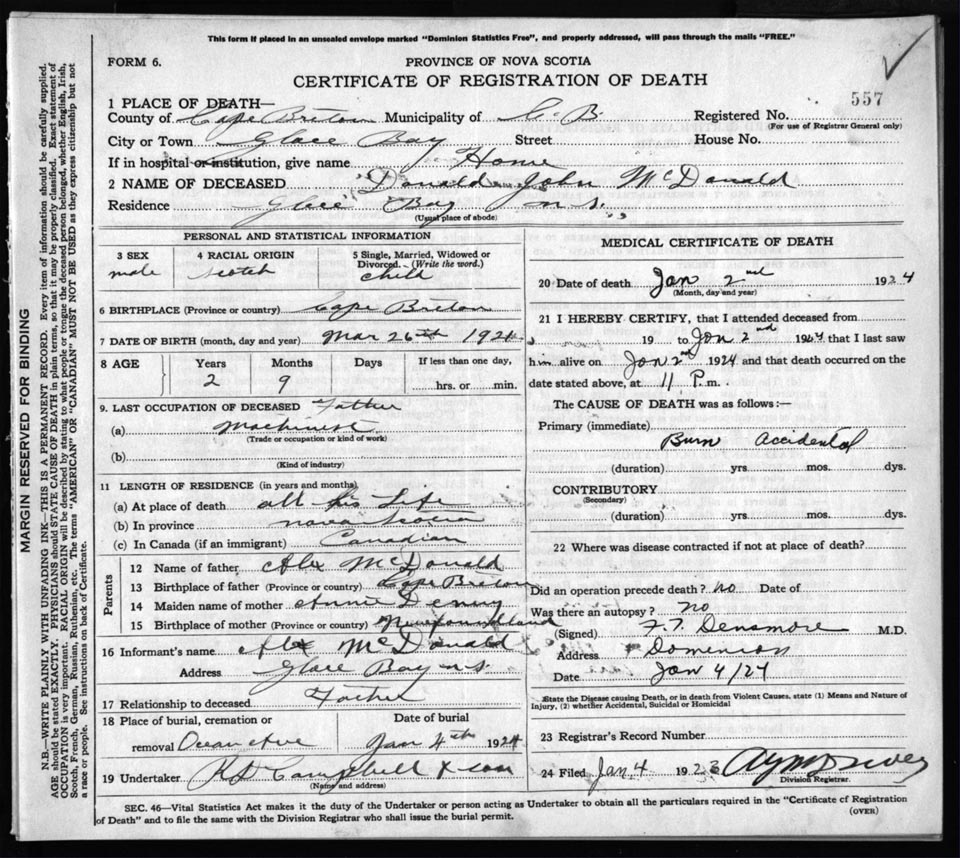 This form if placed in an unsealed envelope marked "Dominion Statistics Free", and properly addressed, will pass through the mails "FREE."
FORM 6.
PROVINCE OF NOVA SCOTIA
CERTIFICATE OF REGISTRATION OF DEATH
557
1 PLACE OF DEATH—
County of Cape Breton Municipality of C. B. Registered No.
(For use of Registrar General only)
City or Town Glace Bay Street House No.
If in hospital or institution, give name Home
2 NAME OF DECEASED Donald John McDonald
Residence Glace Bay n.s.
(Usual place of abode)
PERSONAL AND STATISTICAL INFORMATION
3 SEX male
4 RACIAL ORIGIN Scotch
5 Single, Married, Widowed or Divorced. (Write the word.) child
6 BIRTHPLACE (Province or country) Cape Breton
7 DATE OF BIRTH (month, day and year) Mar 26th 1921
8 AGE Years Months Days If less than one day,
2 9 hrs. or min.
9. LAST OCCUPATION OF DECEASED Father
(a) Machinist
(Trade or occupation or kind of work)
(b)
(Kind of industry)
11 LENGTH OF RESIDENCE (in years and months)
(a) At place of death all his Life
(b) In province nova Scotia
(c) In Canada (if an immigrant) Canadian
Parents
12 Name of father Alex McDonald
13 Birthplace of father (Province or country) Cape Breton
14 Maiden name of mother Annie Denny
15 Birthplace of mother (Province or country) Newfoundland
16 Informant's name Alex McDonald
Address Glace Bay n.s.
17 Relationship to deceased Father
18 Place of burial, cremation or removal Ocean ave
Date of burial Jan 4th 1924
19 Undertaker Campbell & son
(Name and address)
MEDICAL CERTIFICATE OF DEATH
20 Date of death Jan 2nd 1924
(Month, day and year)
21 I HEREBY CERTIFY, that I attended deceased from
19 to Jan 2nd 1924 that I last saw
him alive on Jan 2nd 1924 and that death occurred on the
date stated above, at 11 P. m.
The CAUSE OF DEATH was as follows:—
Primary (immediate)
Burn Accidental
(duration) yrs. mos. dys.
CONTRIBUTORY
(Secondary)
(duration) yrs. mos. dys.
22 Where was disease contracted if not at place of death?
Did an operation precede death? no Date of
Was there an autopsy? no
(Signed) F. T. Densmore M.D.
Address Dominion
Date Jan 4/24
State the Disease causing Death, or in death from Violent Causes, state (1) Means and Nature of
Injury, (2) whether Accidental, Suicidal or Homicidal
23 Registrar's Record Number
24 Filed Jan 4 1923
Division Registrar.
SEC. 46—Vital Statistics Act makes it the duty of the Undertaker or person acting as Undertaker to obtain all the particulars required in the "Certificate of Registration
of Death" and to file the same with the Division Registrar who shall issue the burial permit.
(OVER)
MARGIN RESERVED FOR BINDING
N.B.—WRITE PLAINLY WITH UNFADING INK—THIS IS A PERMANENT RECORD. Every item of information should be carefully supplied.
AGE should be stated EXACTLY. PHYSICIANS should STATE CAUSE OF DEATH in plain terms, so that it may be properly classified. Exact statement of
OCCUPATION is very important. RACIAL ORIGIN will be described by stating to what people or tongue the deceased person belonged, whether English, Irish,
Scotch, French, German, Russian, Ruthenian, etc. The terms "AMERICAN" or "CANADIAN" MUST NOT BE USED as they express citizenship but not
a race or people. See instructions on back of Certificate.